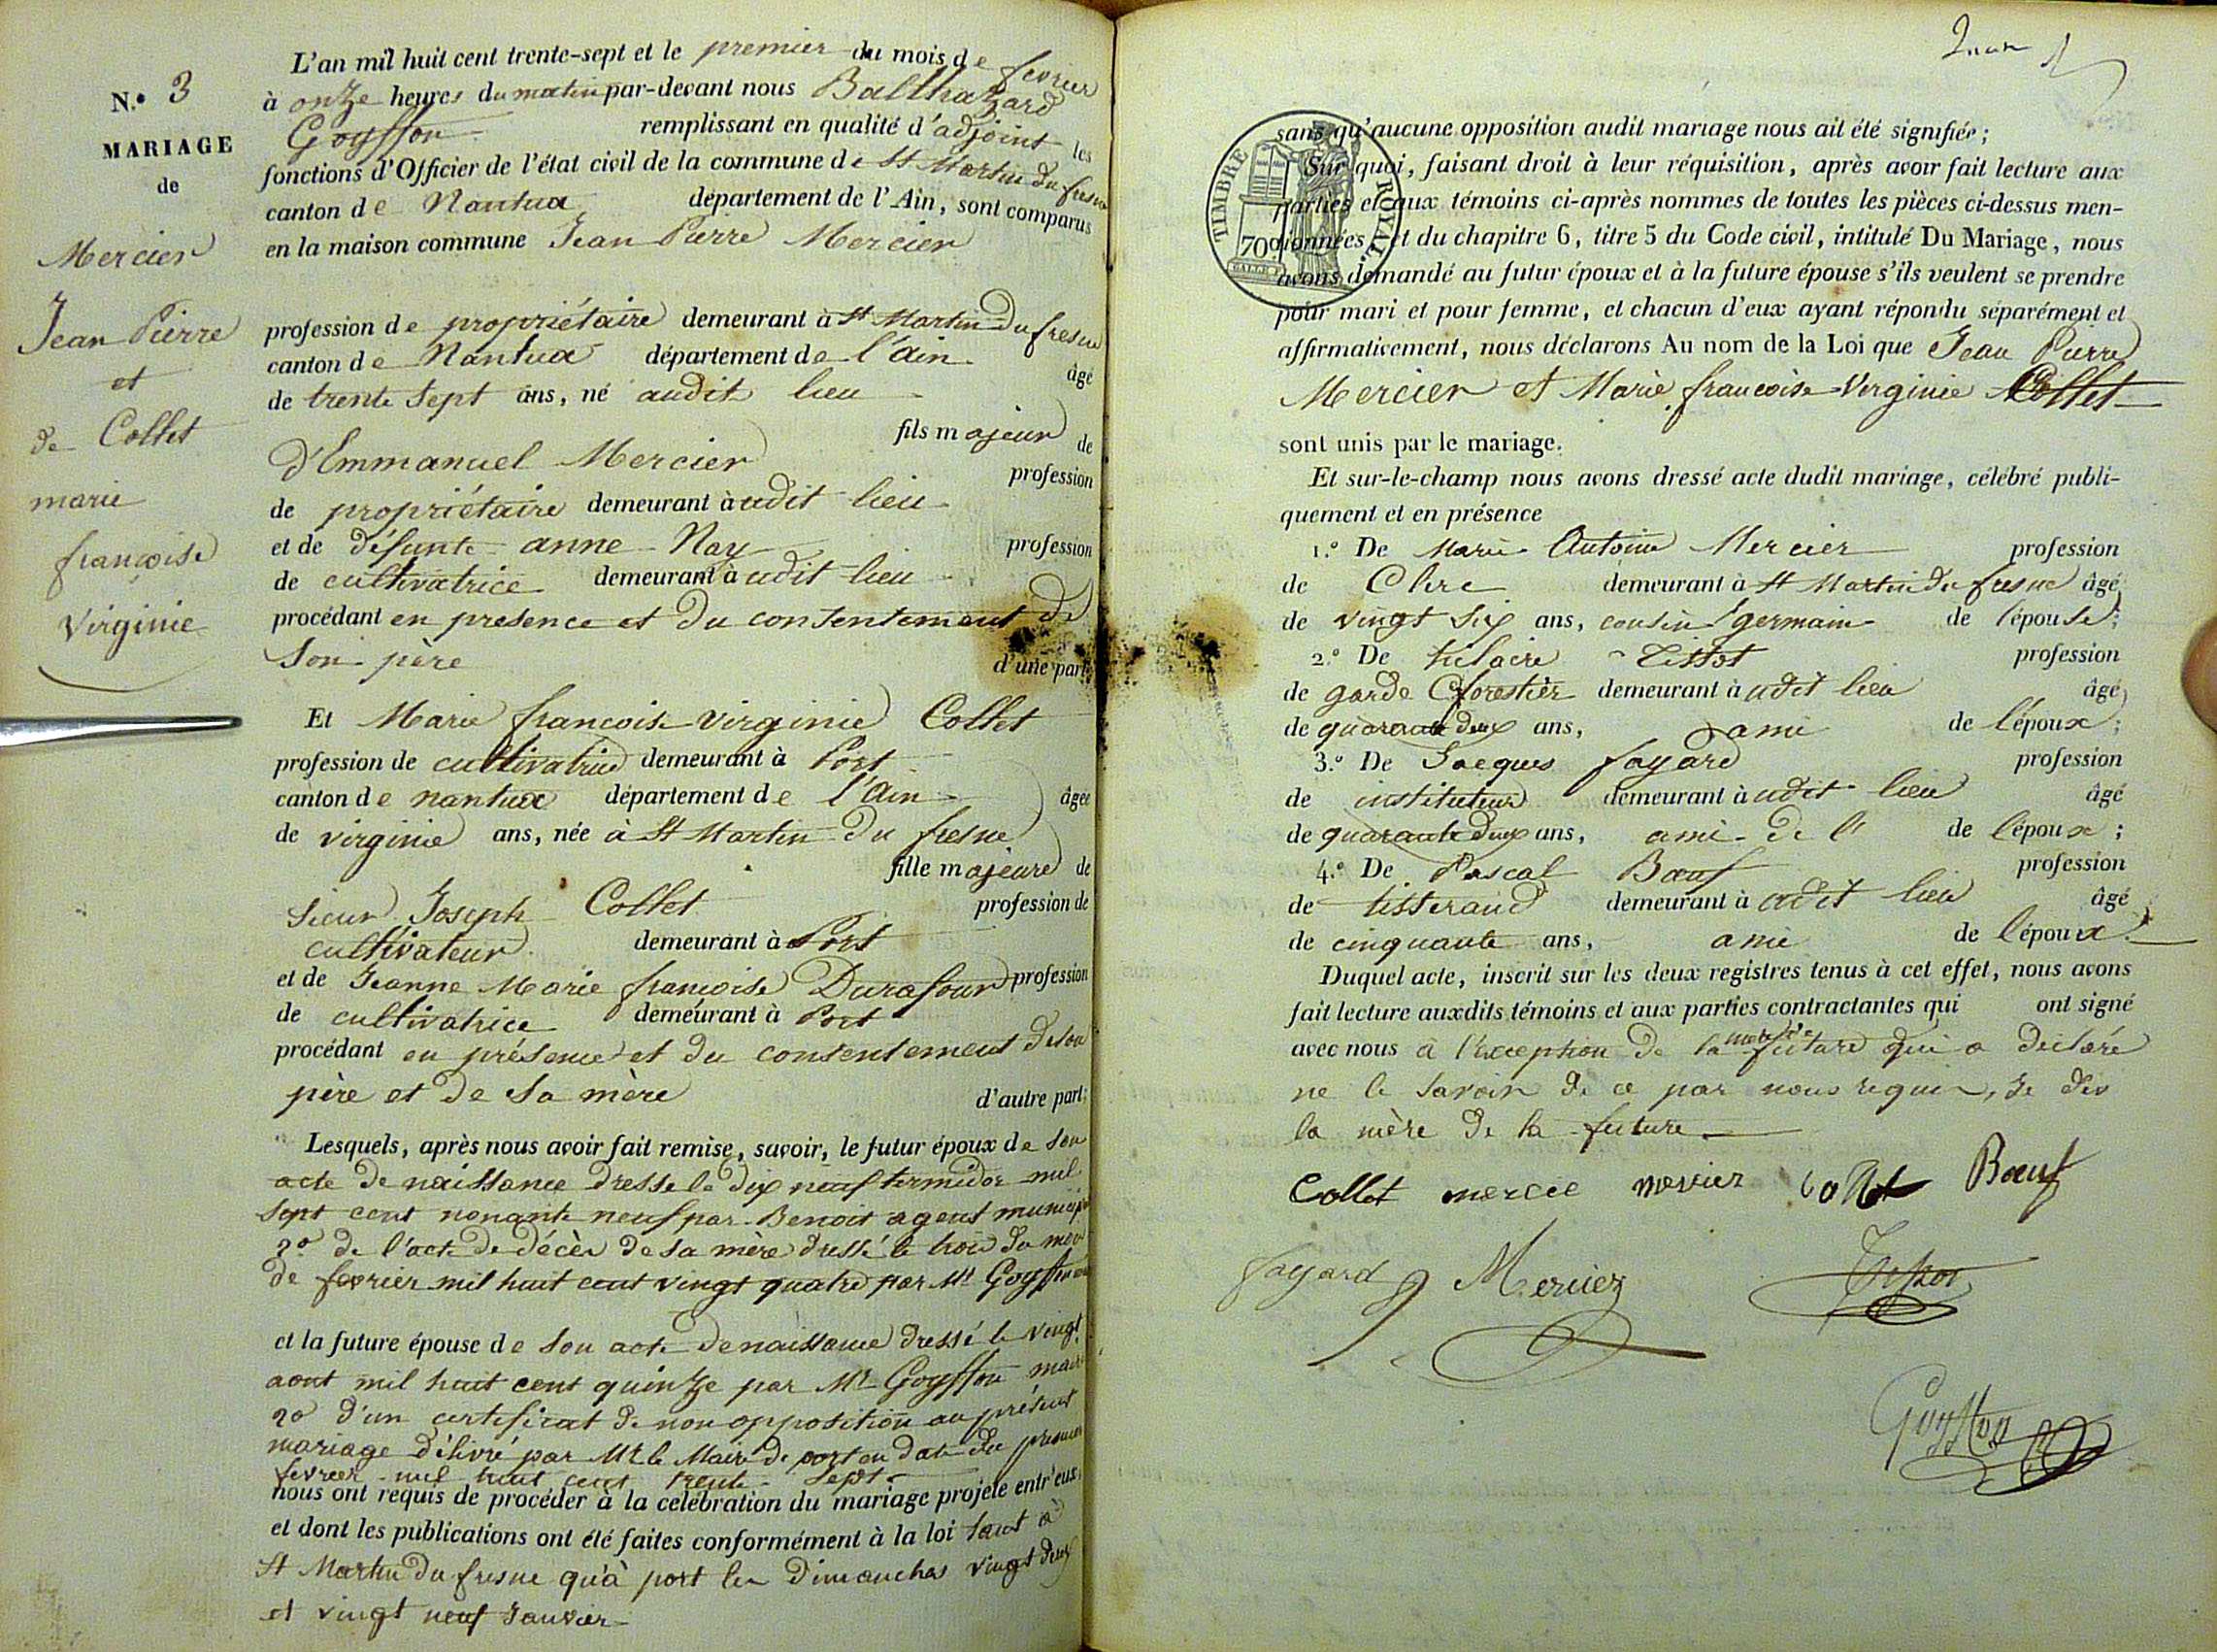 N.º 3
MARIAGE
de
Mercier
Jean Pierre
et
de Collet
marie
françoise
Virginie
L'an mil huit cent trente-sept et le premier du mois de fevrier
à onze heures du matin par-devant nous Balthazard
Goyffon remplissant en qualité d'adjoint les
fonctions d'Officier de l'état civil de la commune de St Martin du fresne
canton de Nantua département de l'Ain, sont comparus
en la maison commune Jean Pierre Mercier
profession de propriétaire demeurant à St Martin du fresne
canton de Nantua département de l'Ain âgé
de trente sept ans, né audit lieu
fils majeur de
d'Emmanuel Mercier profession
de propriétaire demeurant audit lieu
et de défunte anne Nay profession
de cultivatrice demeurant audit lieu
procédant en presence et du consentement de
son père d'une part
Et Marie francoise virginie Collet
profession de cultivatrice demeurant à Port
canton de nantua département de l'Ain âgée
de virginie ans, née à St Martin du fresne
fille majeure de
sieur Joseph Collet profession de
cultivateur demeurant à Port
et de Jeanne Marie françoise Durafour profession
de cultivatrice demeurant à Port
procédant en présence et du consentement de son
père et de sa mère d'autre part;
Lesquels, après nous avoir fait remise, savoir, le futur époux de son
acte de naissance dressé le dix neuf termidor mil
sept cent nonante neuf par Benoit agent municipal
2º de l'acte de décès de sa mère dressé le trois du mois
de fevrier mil huit cent vingt quatre par Mr Goyffon
et la future épouse de son acte de naissance dressé le vingt
aout mil huit cent quinze par Mr Goyffon maire
2º d'un certificat de non opposition au présent
mariage délivré par Mr le Maire de port en date du premier
fevrier mil huit cent trente sept
nous ont requis de procéder à la celébration du mariage projeté entr'eux,
et dont les publications ont été faites conformément à la loi tant à
St Martin du fresne qu'à port les dimanches vingt deux
et vingt neuf Janvier
sans qu'aucune opposition audit mariage nous ait été signifiée;
Sur quoi, faisant droit à leur réquisition, après avoir fait lecture aux
parties et aux témoins ci-après nommés de toutes les pièces ci-dessus men-
tionnées, et du chapitre 6, titre 5 du Code civil, intitulé Du Mariage, nous
avons demandé au futur époux et à la future épouse s'ils veulent se prendre
pour mari et pour femme, et chacun d'eux ayant répondu séparément et
affirmativement, nous déclarons Au nom de la Loi que Jean Pierre
Mercier et Marie francoise Virginie Collet
sont unis par le mariage.
Et sur-le-champ nous avons dressé acte dudit mariage, célébré publi-
quement et en présence
1.º De Marie Antoine Mercier profession
de Clerc demeurant à St Martin du fresne âgé
de vingt six ans, cousin germain de l'épouse;
2.º De hilaire Tissot profession
de garde forestier demeurant audit lieu âgé
de quarante deux ans, ami de l'époux;
3.º De Jacques fayard profession
de instituteur demeurant audit lieu âgé
de quarante deux ans, ami de l' de l'époux;
4.º De Pascal Bœuf profession
de tisserand demeurant à audit lieu âgé
de cinquante ans, ami de l'époux.
Duquel acte, inscrit sur les deux registres tenus à cet effet, nous avons
fait lecture auxdits témoins et aux parties contractantes qui ont signé
avec nous à l'exception de la mère de future qui a déclaré
ne le savoir de ce par nous requis, je dis
la mère de la future
Collet mercie mercier Collet Bœuf
fayard Mercier Tissot
Goyffon
TIMBRE ROYAL
70